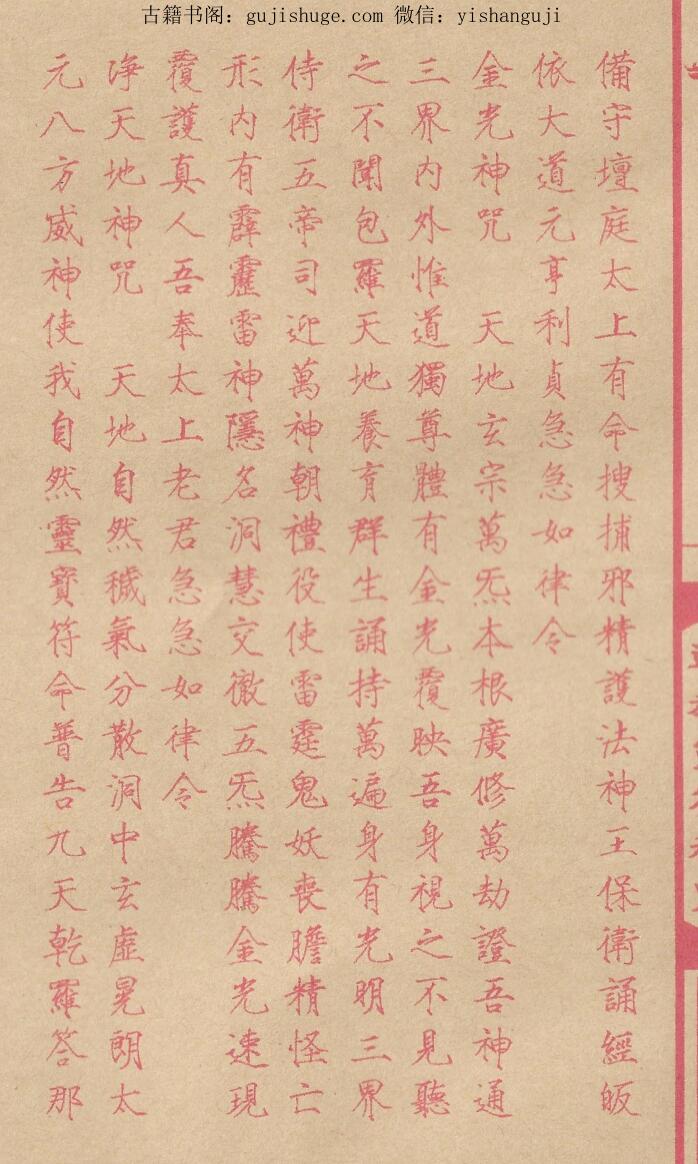 古籍书阁：gujishuge.com 微信：yishanguji
備守壇庭太上有命搜捕邪精護法神王保衛誦經皈
依大道元亨利貞急急如律令
金光神咒　天地玄宗萬炁本根廣修萬劫證吾神通
三界內外惟道獨尊體有金光覆映吾身視之不見聽
之不聞包羅天地養育群生誦持萬遍身有光明三界
侍衛五帝司迎萬神朝禮役使雷霆鬼妖喪膽精怪亡
形內有霹靂雷神隱名洞慧交徹五炁騰騰金光速現
覆護真人吾奉太上老君急急如律令
淨天地神咒　天地自然穢氣分散洞中玄虛晃朗太
元八方威神使我自然靈寶符命普告九天乾羅答那